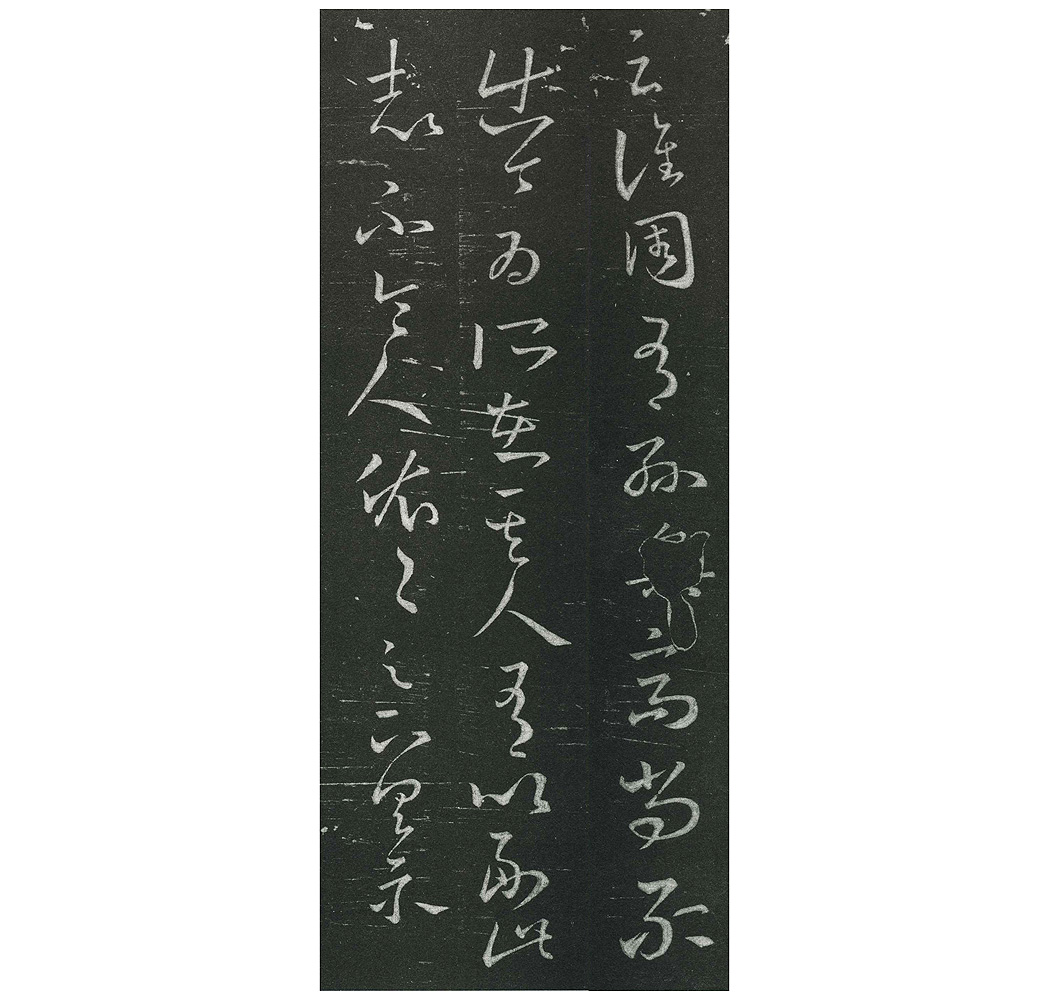 云譙周有孫高尚不
出今為所在其人有以副此
志不令人依〻足下具示